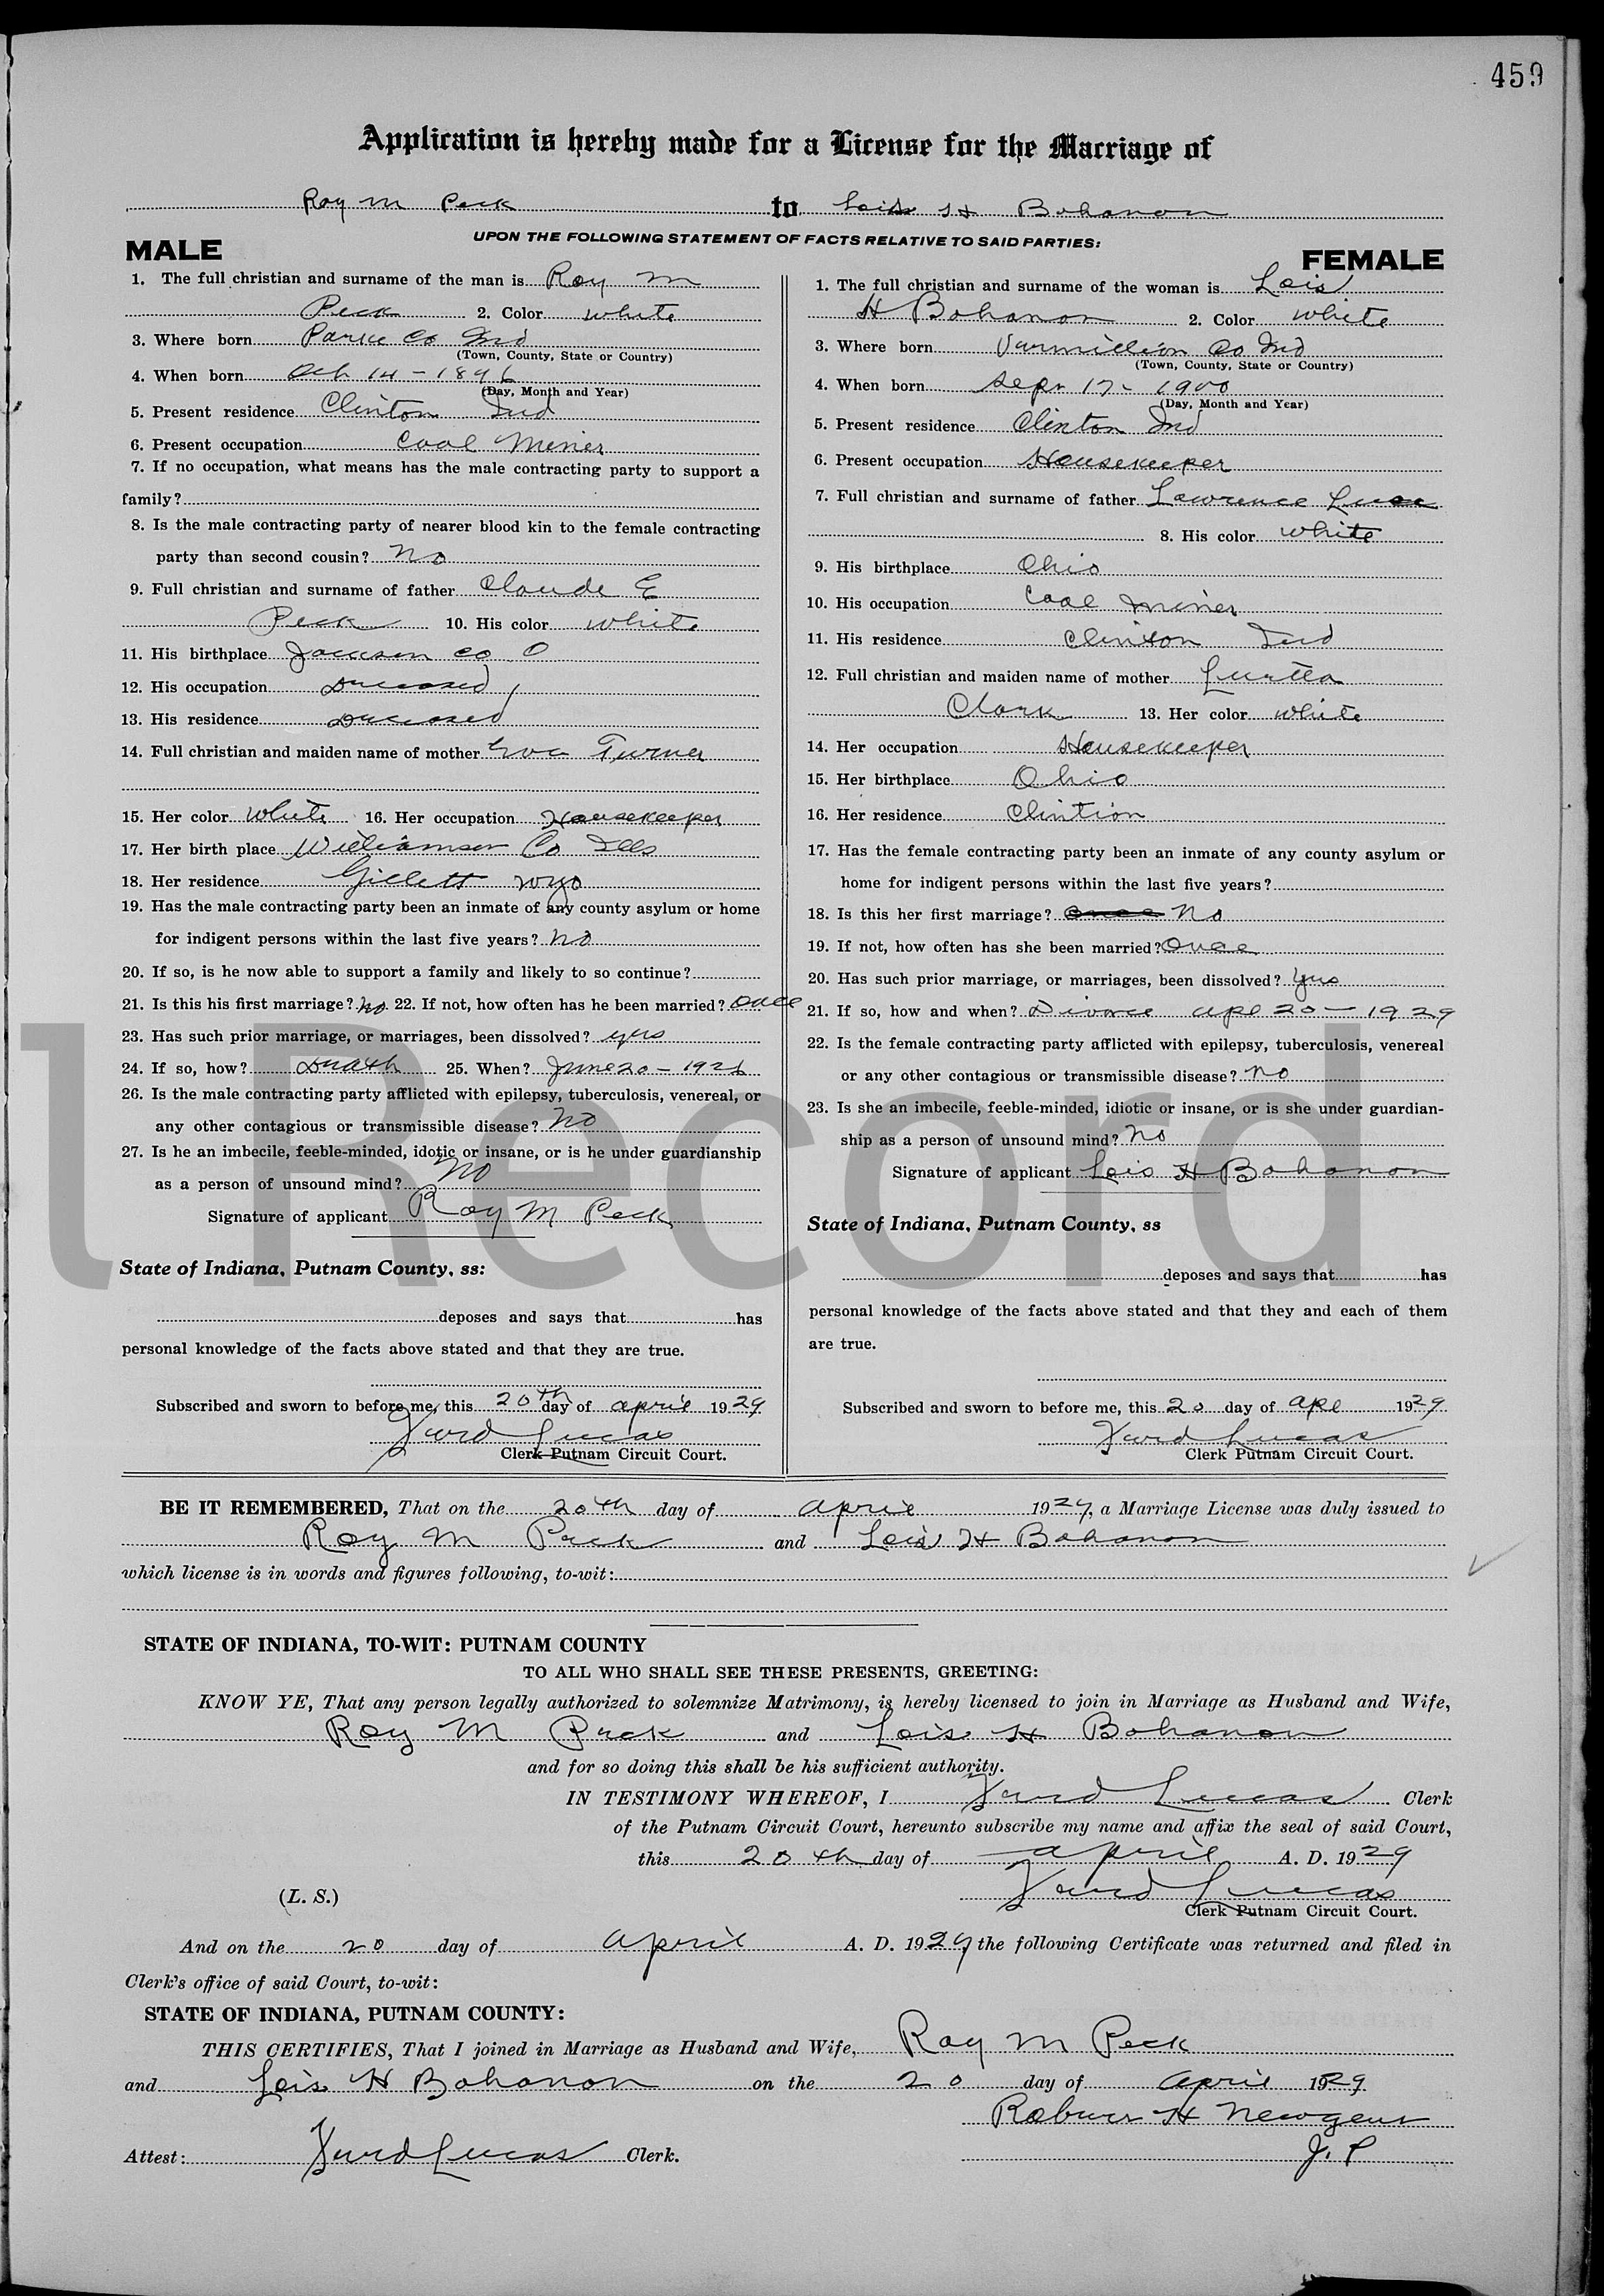 459
Application is hereby made for a License for the Marriage of
Roy M Peck to Lois H Bohanon
UPON THE FOLLOWING STATEMENT OF FACTS RELATIVE TO SAID PARTIES:
MALE
1. The full christian and surname of the man is Roy M
Peck 2. Color white
3. Where born Parke Co Ind
(Town, County, State or Country)
4. When born Oct 14 - 1896
(Day, Month and Year)
5. Present residence Clinton Ind
6. Present occupation Coal Miner
7. If no occupation, what means has the male contracting party to support a
family?
8. Is the male contracting party of nearer blood kin to the female contracting
party than second cousin? No
9. Full christian and surname of father Claude E
Peck 10. His color white
11. His birthplace Jackson Co O
12. His occupation Deceased
13. His residence Deceased
14. Full christian and maiden name of mother Eva Turner
15. Her color White 16. Her occupation Housekeeper
17. Her birth place Williamson Co Ills
18. Her residence Gillett Wyo
19. Has the male contracting party been an inmate of any county asylum or home
for indigent persons within the last five years? No
20. If so, is he now able to support a family and likely to so continue?
21. Is this his first marriage? No 22. If not, how often has he been married? Once
23. Has such prior marriage, or marriages, been dissolved? yes
24. If so, how? Death 25. When? June 20 - 1926
26. Is the male contracting party afflicted with epilepsy, tuberculosis, venereal, or
any other contagious or transmissible disease? No
27. Is he an imbecile, feeble-minded, idotic or insane, or is he under guardianship
as a person of unsound mind? No
Signature of applicant Roy M Peck
State of Indiana, Putnam County, ss:
deposes and says that has
personal knowledge of the facts above stated and that they are true.
Subscribed and sworn to before me, this 20th day of April 1929
Lucas
Clerk Putnam Circuit Court.
FEMALE
1. The full christian and surname of the woman is Lois
H Bohanon 2. Color White
3. Where born Vurmillion Co Ind
(Town, County, State or Country)
4. When born Sept 17 - 1900
(Day, Month and Year)
5. Present residence Clinton Ind
6. Present occupation Housekeeper
7. Full christian and surname of father Lawrence
8. His color White
9. His birthplace Ohio
10. His occupation Coal Miner
11. His residence Clinton Ind
12. Full christian and maiden name of mother
Clark 13. Her color white
14. Her occupation Housekeeper
15. Her birthplace Ohio
16. Her residence Clintion
17. Has the female contracting party been an inmate of any county asylum or
home for indigent persons within the last five years?
18. Is this her first marriage? Once No
19. If not, how often has she been married? Once
20. Has such prior marriage, or marriages, been dissolved? Yes
21. If so, how and when? Divorce Apl 20 - 1929
22. Is the female contracting party afflicted with epilepsy, tuberculosis, venereal
or any other contagious or transmissible disease? No
23. Is she an imbecile, feeble-minded, idiotic or insane, or is she under guardian-
ship as a person of unsound mind? No
Signature of applicant Lois H Bohanon
State of Indiana, Putnam County, ss
deposes and says that has
personal knowledge of the facts above stated and that they and each of them
are true.
Subscribed and sworn to before me, this 20 day of Apl 1929
Lucas
Clerk Putnam Circuit Court.
l Record
BE IT REMEMBERED, That on the 20th day of April 1929, a Marriage License was duly issued to
Roy M Peck and Lois H Bohanon
which license is in words and figures following, to-wit:
STATE OF INDIANA, TO-WIT: PUTNAM COUNTY
TO ALL WHO SHALL SEE THESE PRESENTS, GREETING:
KNOW YE, That any person legally authorized to solemnize Matrimony, is hereby licensed to join in Marriage as Husband and Wife,
Roy M Peck and Lois H Bohanon
and for so doing this shall be his sufficient authority.
IN TESTIMONY WHEREOF, I Lucas Clerk
of the Putnam Circuit Court, hereunto subscribe my name and affix the seal of said Court,
this 20th day of April A. D. 1929
Lucas
(L. S.)
Clerk Putnam Circuit Court.
And on the 20 day of April A. D. 1929 the following Certificate was returned and filed in
Clerk's office of said Court, to-wit:
STATE OF INDIANA, PUTNAM COUNTY:
THIS CERTIFIES, That I joined in Marriage as Husband and Wife, Roy M Peck
and Lois H Bohanon on the 20 day of April 1929
H Newgent
Attest: Lucas Clerk.
J. P